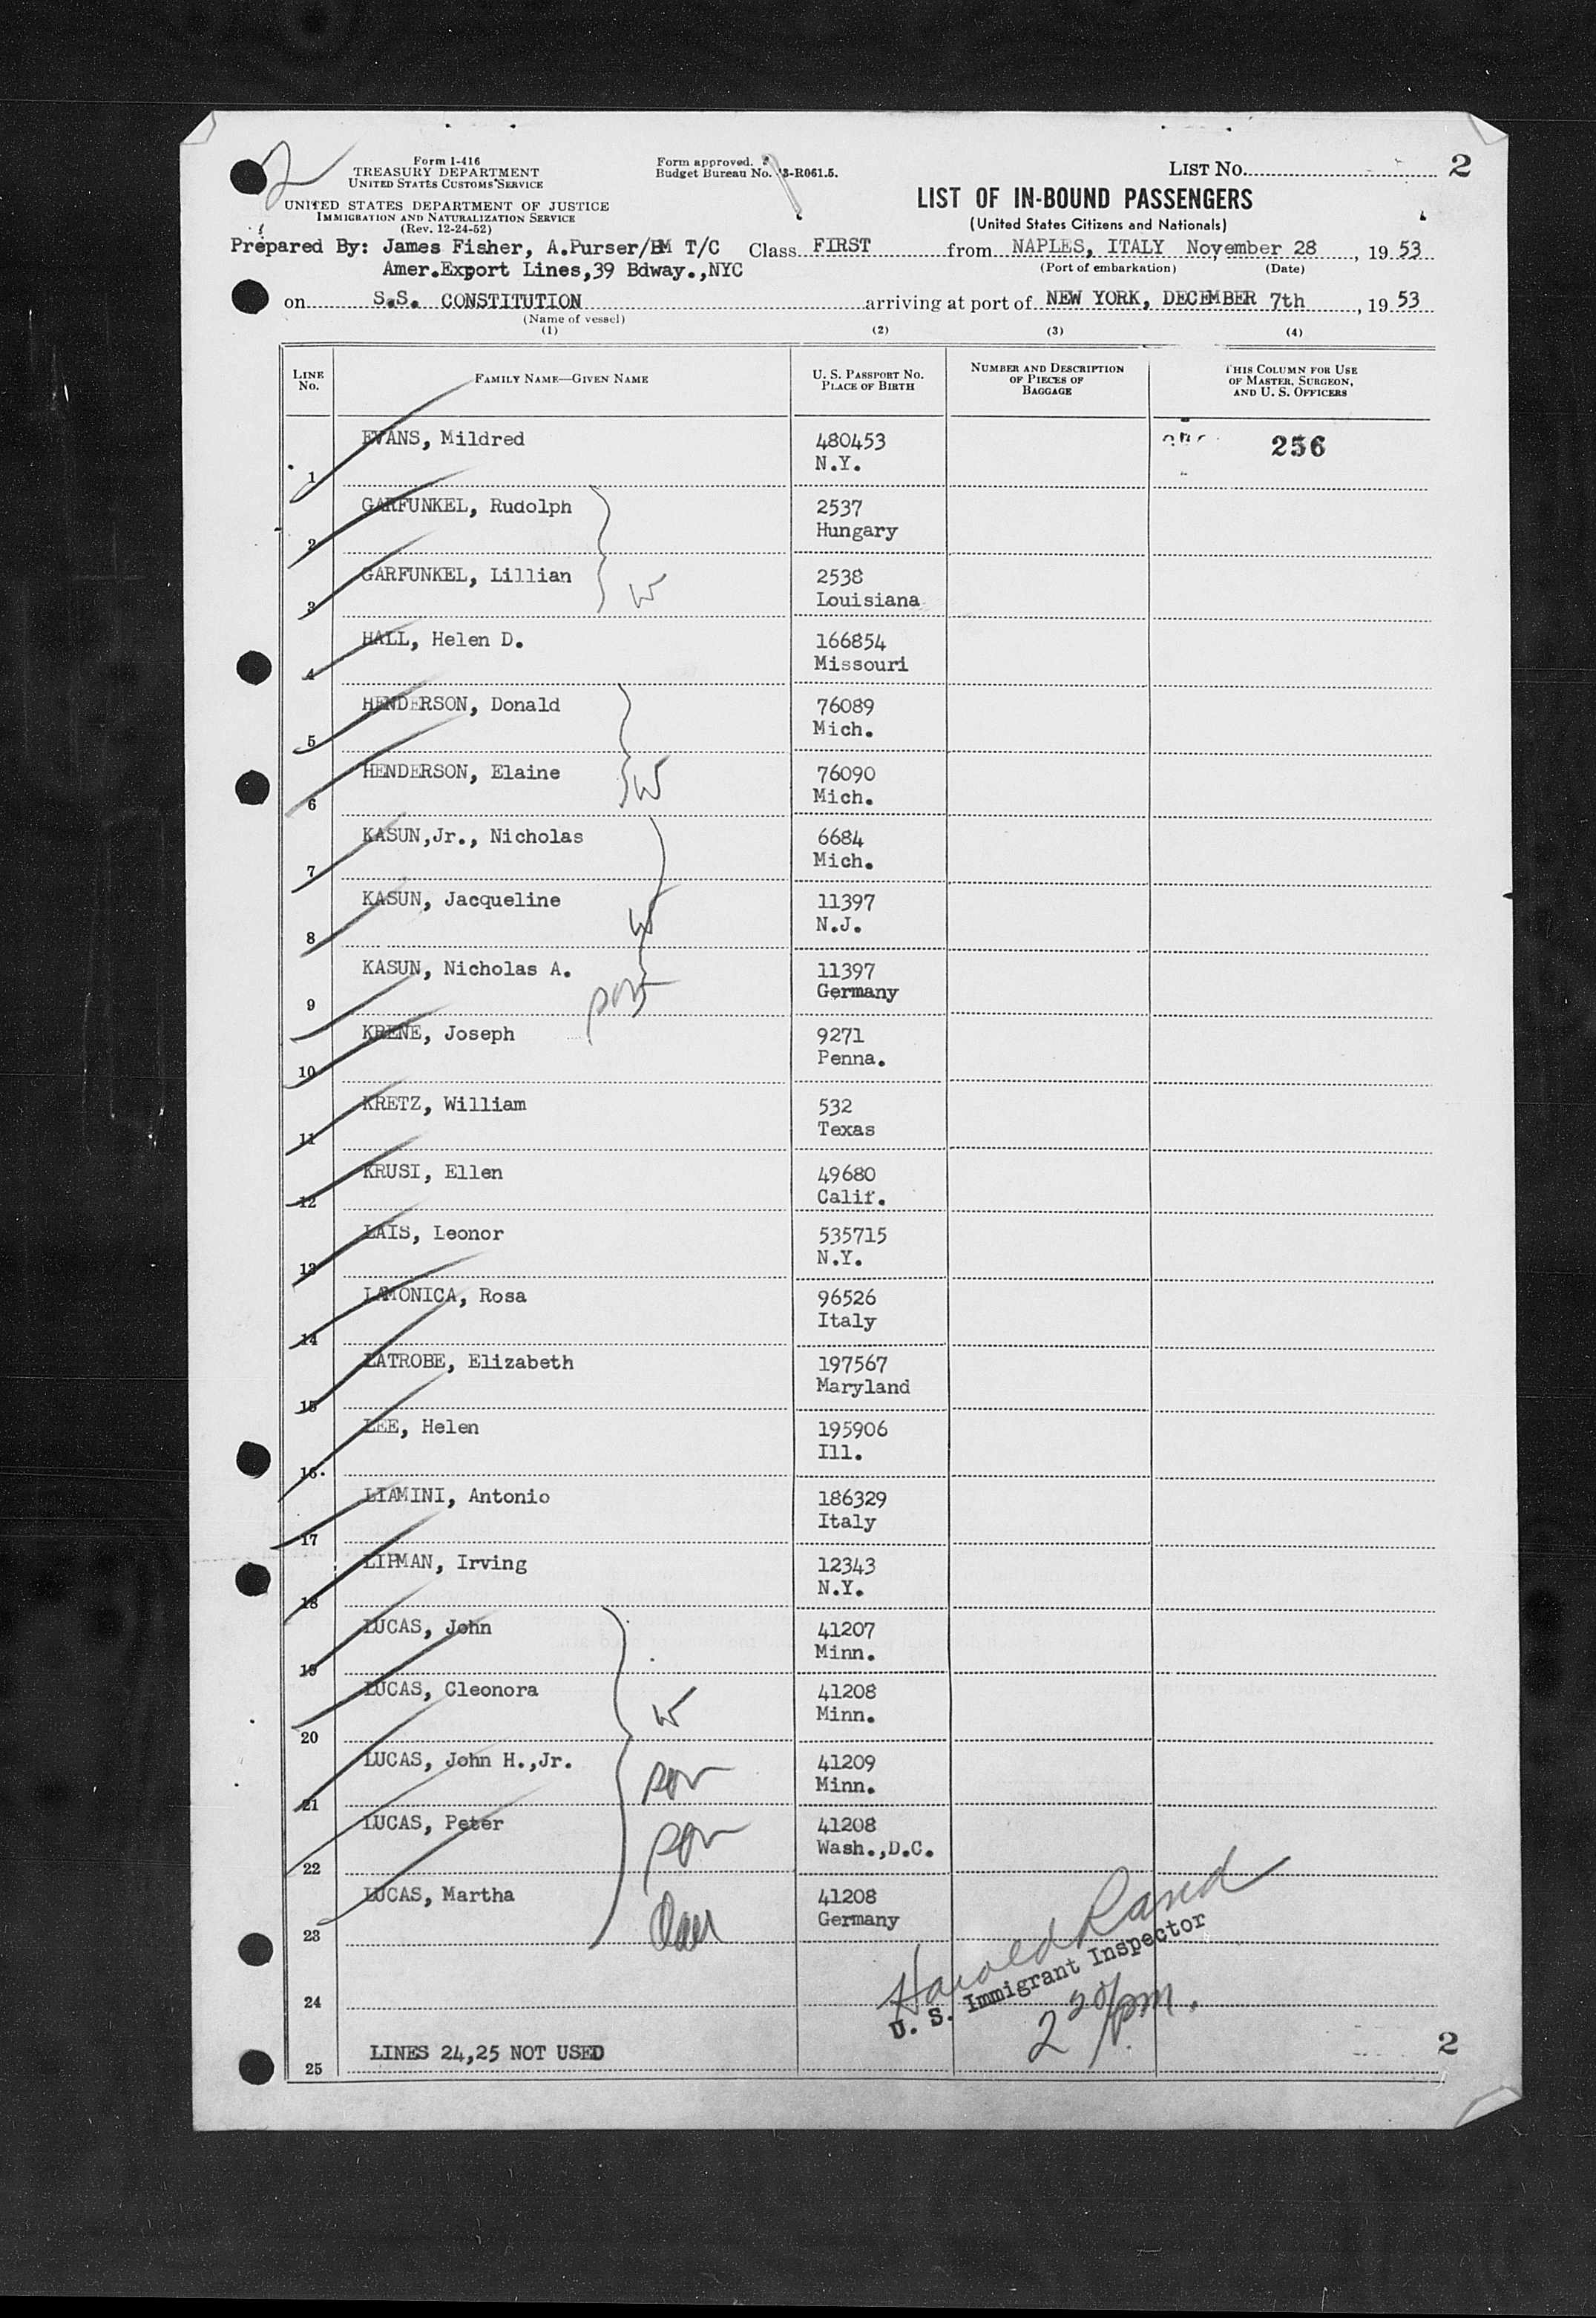 2
Form I-416
TREASURY DEPARTMENT
UNITED STATES CUSTOMS SERVICE
UNITED STATES DEPARTMENT OF JUSTICE
IMMIGRATION AND NATURALIZATION SERVICE
(Rev. 12-24-52)
Form approved.
Budget Bureau No. 43-R061.5.
LIST NO. 2
LIST OF IN-BOUND PASSENGERS
(United States Citizens and Nationals)
Prepared By: James Fisher, A.Purser/BM T/C Class FIRST from NAPLES, ITALY November 28, 1953
Amer.Export Lines,39 Bdway.,NYC (Port of embarkation) (Date)
on S.S. CONSTITUTION arriving at port of NEW YORK, DECEMBER 7th, 1953
(Name of vessel)
(1) (2) (3) (4)
LINE No. FAMILY NAME—GIVEN NAME U. S. PASSPORT NO. PLACE OF BIRTH NUMBER AND DESCRIPTION OF PIECES OF BAGGAGE THIS COLUMN FOR USE OF MASTER, SURGEON, AND U. S. OFFICERS
EVANS, Mildred 480453 256
1 N.Y.
GARFUNKEL, Rudolph 2537
2 Hungary
GARFUNKEL, Lillian W 2538
3 Louisiana
HALL, Helen D. 166854
4 Missouri
HENDERSON, Donald 76089
5 Mich.
HENDERSON, Elaine W 76090
6 Mich.
KASUN,Jr., Nicholas 6684
7 Mich.
KASUN, Jacqueline W 11397
8 N.J.
KASUN, Nicholas A. son 11397
9 Germany
KRENE, Joseph 9271
10 Penna.
KRETZ, William 532
11 Texas
KRUSI, Ellen 49680
12 Calif.
LAIS, Leonor 535715
13 N.Y.
LAMONICA, Rosa 96526
14 Italy
LATROBE, Elizabeth 197567
15 Maryland
LEE, Helen 195906
16. Ill.
LIAMINI, Antonio 186329
17 Italy
LIPMAN, Irving 12343
18 N.Y.
LUCAS, John 41207
19 Minn.
LUCAS, Cleonora W 41208
20 Minn.
LUCAS, John H.,Jr. son 41209
21 Minn.
LUCAS, Peter son 41208
22 Wash.,D.C.
LUCAS, Martha 41208
23 Germany
Harold Rand
U. S. Immigrant Inspector
24
2 20/pm.
LINES 24,25 NOT USED 2
25